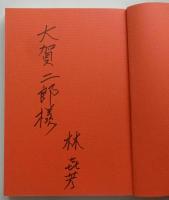 大賀二郎様
林喜芳